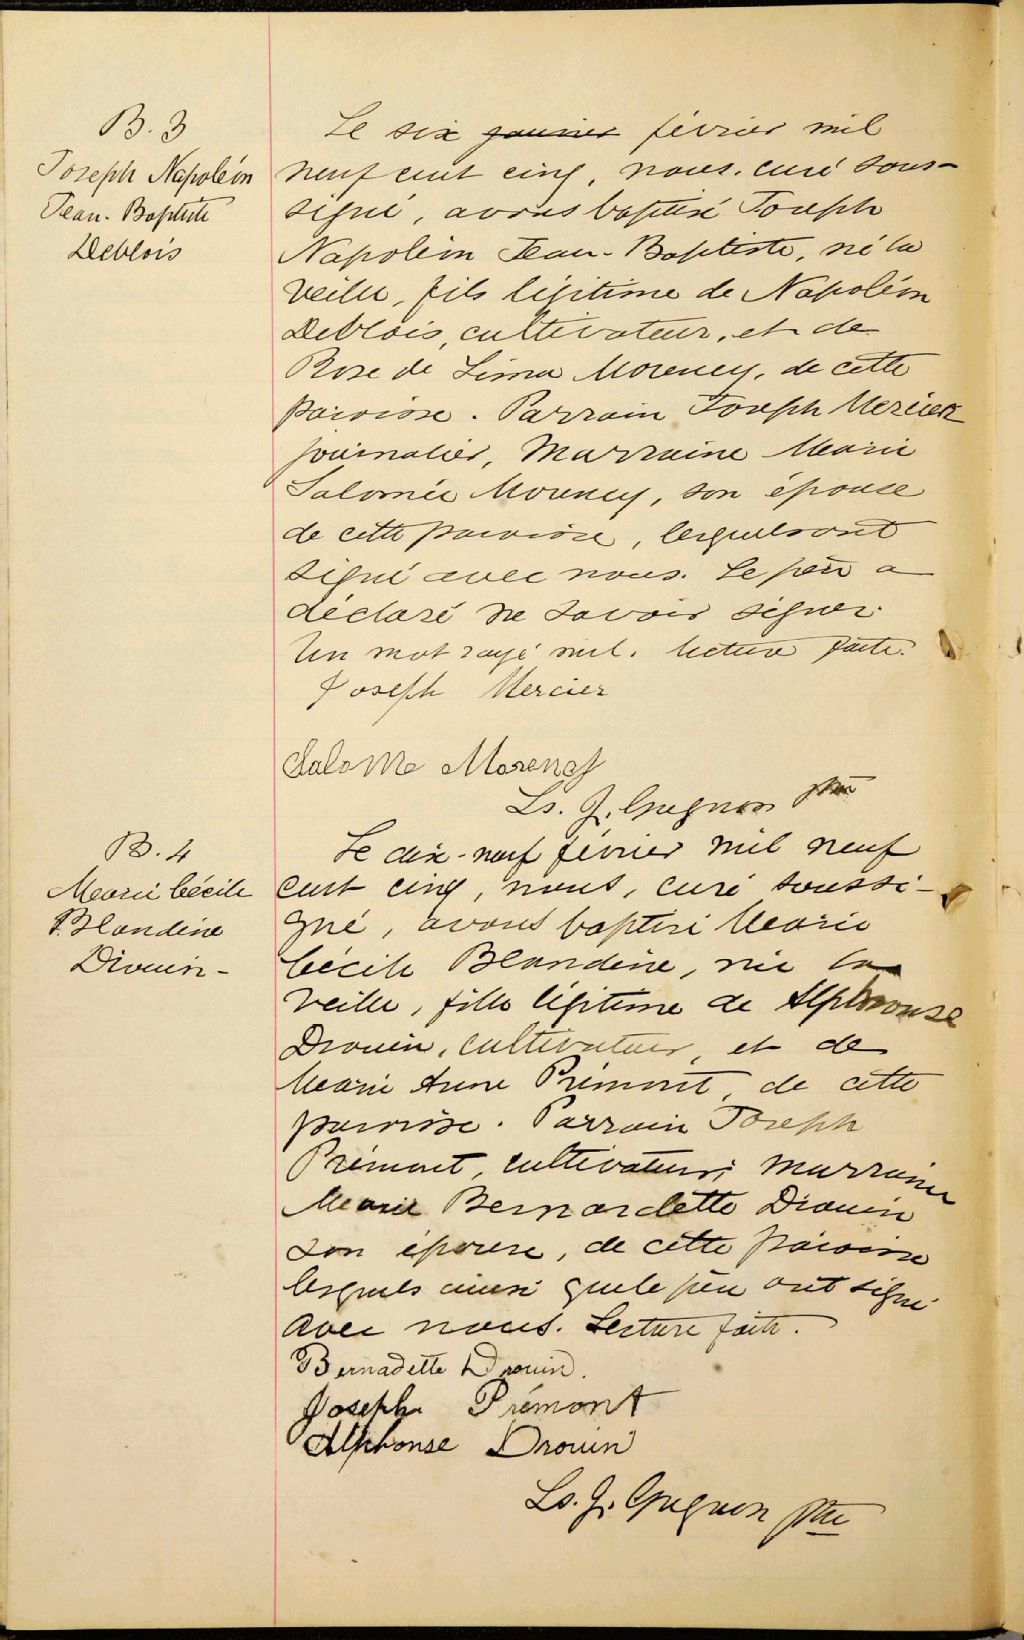 B. 3
Joseph Napoléon
Jean-Baptiste
Deblois
Le six janvier février mil
neuf cent cinq, nous, curé sous-
signé, avons baptisé Joseph
Napoléon Jean-Baptiste, né la
veille, fils légitime de Napoléon
Deblois, cultivateur, et de
Rose de Lima Morency, de cette
paroisse. Parrain Joseph Mercier
journalier, Marraine Marie
Salomée Morency, son épouse
de cette paroisse, lesquels ont
signé avec nous. Le père a
déclaré ne savoir signer.
Un mot rayé nul. lecture faite.
Joseph Mercier
Salomé Morency
Ls. J. Gagnon ptre
B. 4
Marie Cécile
Blandine
Drouin-
Le dix-neuf février mil neuf
cent cinq, nous, curé soussi-
gné, avons baptisé Marie
Cécile Blandine, née la
veille, fille légitime de Alphonse
Drouin, cultivateur, et de
Marie Anne Prémont, de cette
paroisse. Parrain Joseph
Prémont, cultivateur; marraine
Marie Bernardette Drouin
son épouse, de cette paroisse
lesquels ainsi que le père ont signé
avec nous. Lecture faite.
Bernadette Drouin.
Joseph Prémont
Alphonse Drouin
Ls. J. Gagnon ptre